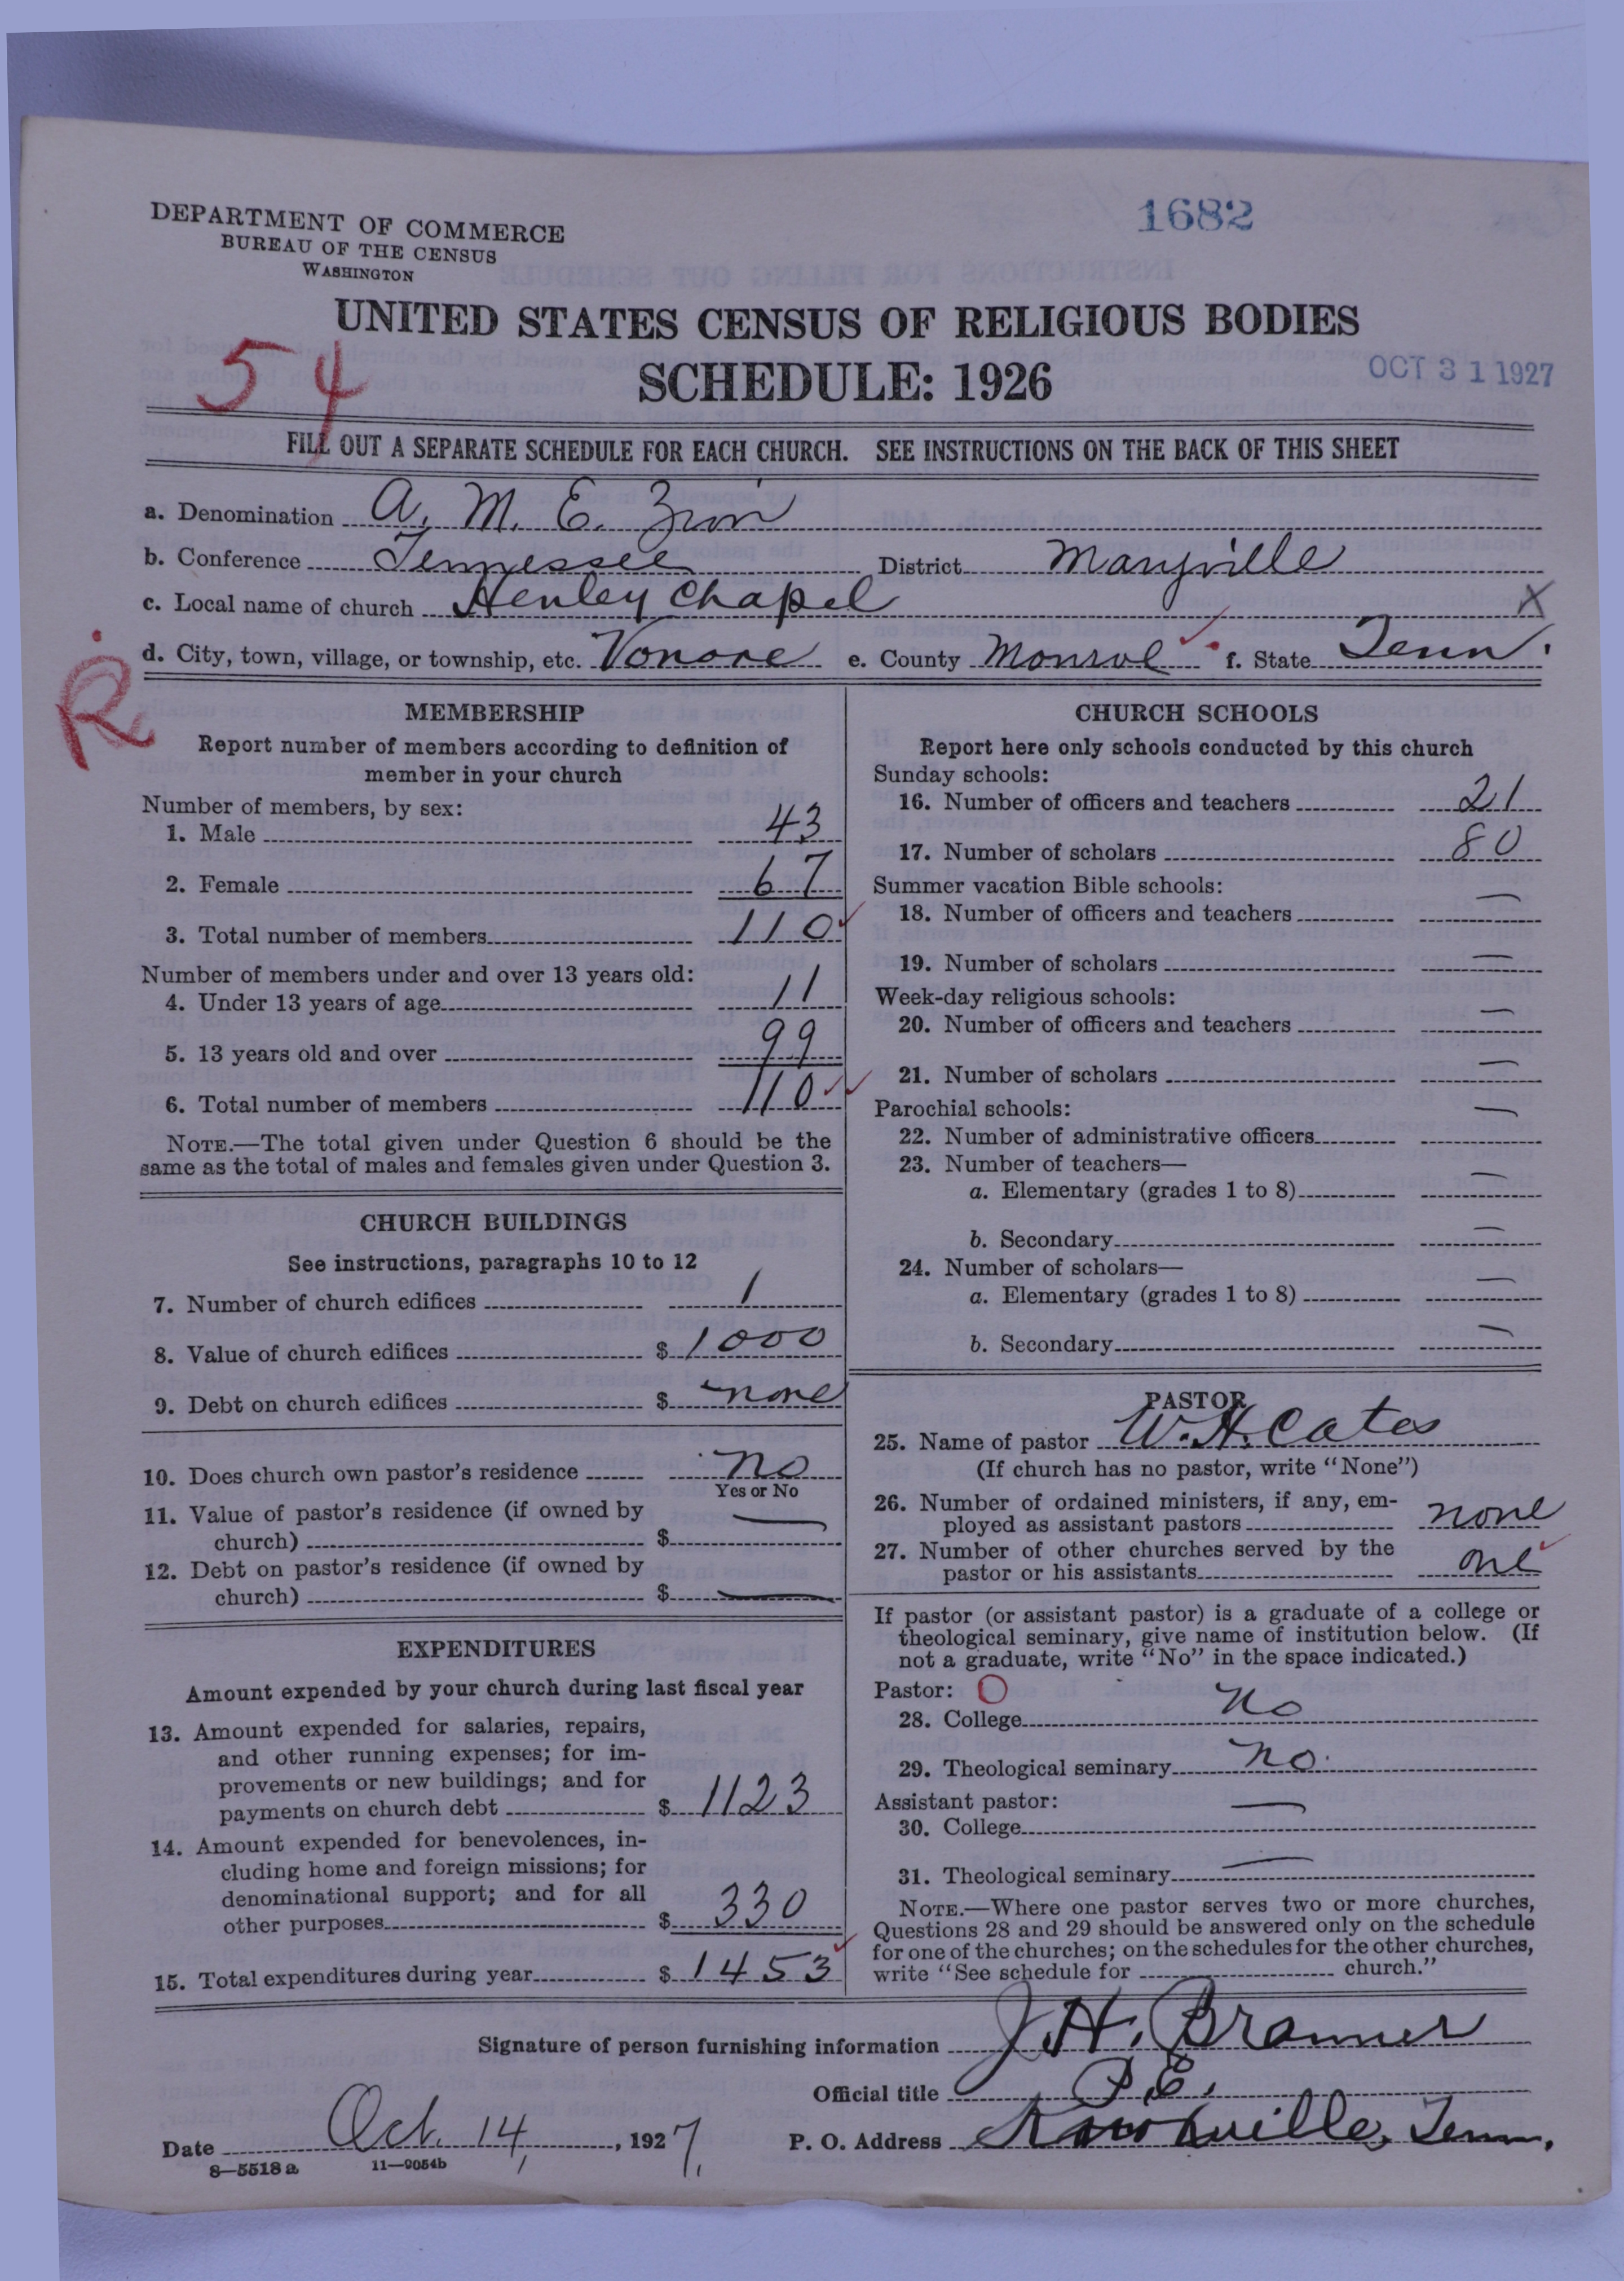 DEPARTMENT OF COMMERCE
BUREAU OF THE CENSUS
WASHINGTON
1682
UNITED STATES CENSUS OF RELIGIOUS BODIES
54
SCHEDULE: 1926
OCT 31 1927
FILL OUT A SEPARATE SCHEDULE FOR EACH CHURCH. SEE INSTRUCTIONS ON THE BACK OF THIS SHEET
a. Denomination A. M. E. Zion
b. Conference Tennessee District Maryville
c. Local name of church Henley Chapel X
d. City, town, village, or township, etc. Vonore e. County Monroe f. State Tenn.
R
MEMBERSHIP
Report number of members according to definition of
member in your church
Number of members, by sex:
1. Male 43
2. Female 67
3. Total number of members 110
Number of members under and over 13 years old:
4. Under 13 years of age 11
5. 13 years old and over 99
6. Total number of members 110
NOTE.—The total given under Question 6 should be the
same as the total of males and females given under Question 3.
CHURCH BUILDINGS
See instructions, paragraphs 10 to 12
7. Number of church edifices 1
8. Value of church edifices $ 1000
9. Debt on church edifices $ none
10. Does church own pastor's residence no
Yes or No
11. Value of pastor's residence (if owned by
church) $ —
12. Debt on pastor's residence (if owned by
church) $ —
EXPENDITURES
Amount expended by your church during last fiscal year
13. Amount expended for salaries, repairs,
and other running expenses; for im-
provements or new buildings; and for
payments on church debt $ 1123
14. Amount expended for benevolences, in-
cluding home and foreign missions; for
denominational support; and for all
other purposes $ 330
15. Total expenditures during year $ 1453
CHURCH SCHOOLS
Report here only schools conducted by this church
Sunday schools:
16. Number of officers and teachers 21
17. Number of scholars 80
Summer vacation Bible schools:
18. Number of officers and teachers —
19. Number of scholars —
Week-day religious schools:
20. Number of officers and teachers —
21. Number of scholars —
Parochial schools:
22. Number of administrative officers —
23. Number of teachers—
a. Elementary (grades 1 to 8) —
b. Secondary —
24. Number of scholars—
a. Elementary (grades 1 to 8) —
b. Secondary —
PASTOR
25. Name of pastor W. H. Cates
(If church has no pastor, write "None")
26. Number of ordained ministers, if any, em-
ployed as assistant pastors none
27. Number of other churches served by the
pastor or his assistants one
If pastor (or assistant pastor) is a graduate of a college or
theological seminary, give name of institution below. (If
not a graduate, write "No" in the space indicated.)
Pastor: O
28. College no
29. Theological seminary no.
Assistant pastor:
30. College —
31. Theological seminary —
NOTE.—Where one pastor serves two or more churches,
Questions 28 and 29 should be answered only on the schedule
for one of the churches; on the schedules for the other churches,
write "See schedule for church."
Signature of person furnishing information J. H. Branner
Official title P. E.
Date Oct. 14, 1927, P. O. Address Knoxville, Tenn.
8—5518 a 11—9054b